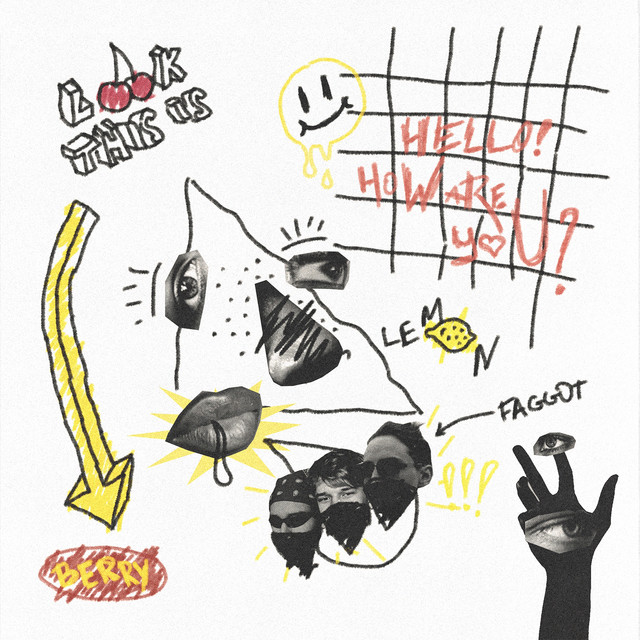 LOOK
THIS iS
HELLO!
HOW ARE
yoU?
LEMON
FAGGOT
!!!
BERRY